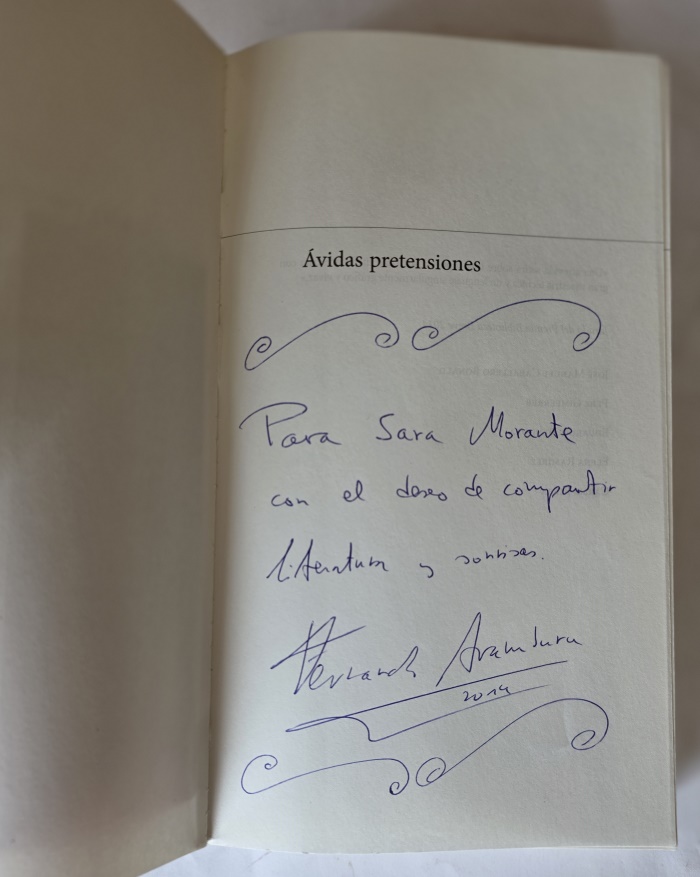 Ávidas pretensiones
Para Sara Morante
con el deseo de compartir
literatura y sonrisas.
Fernando Aramburu
2014